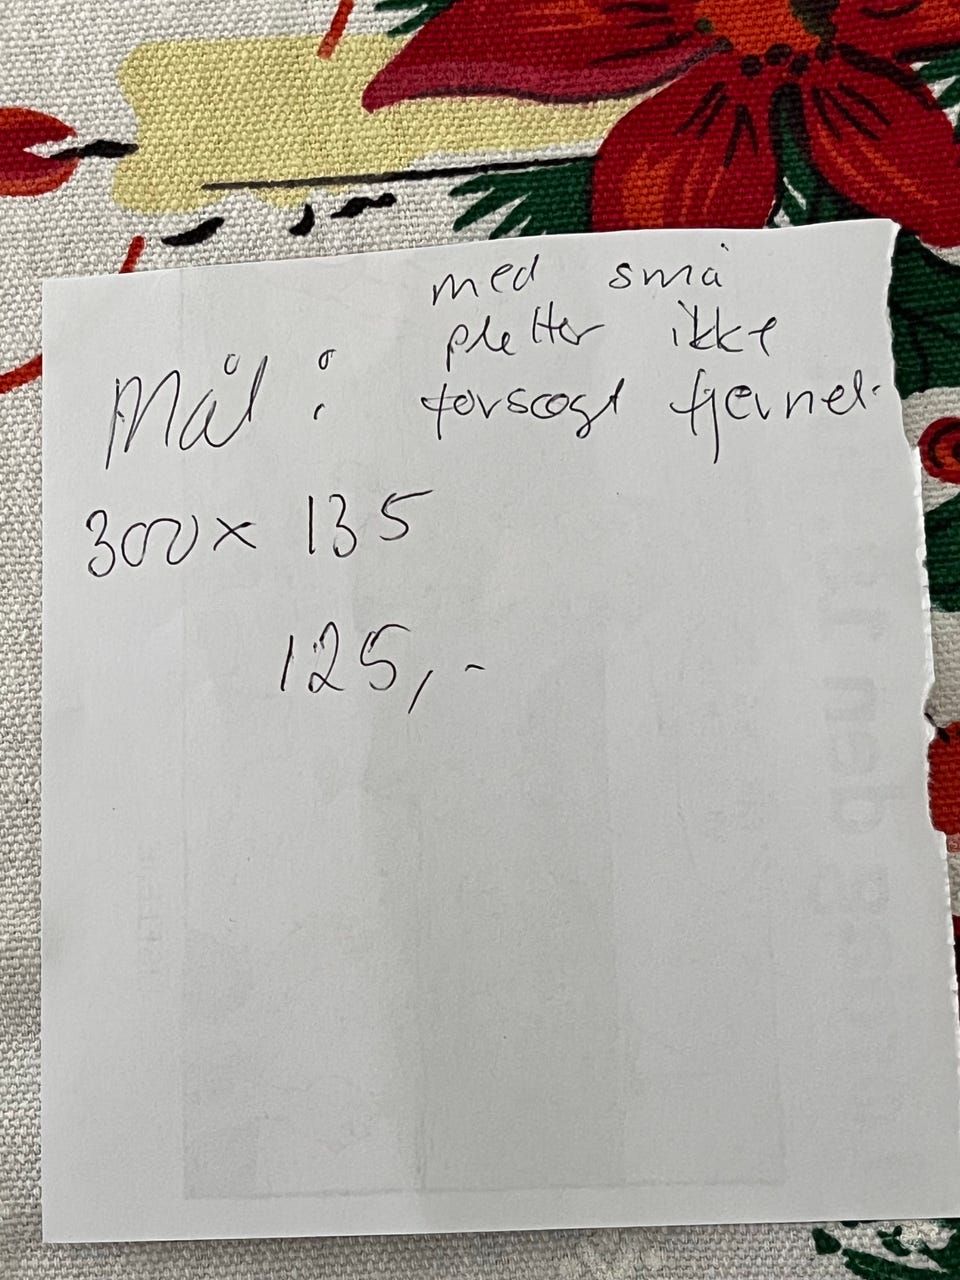 med små
pletter ikke
forsøgt fjernet.
Mål :
300 x 135
125,-